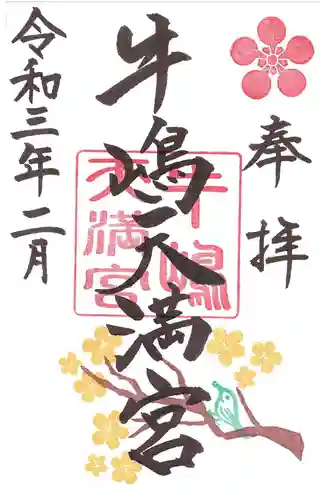 奉拝
牛嶋天満宮
牛嶋
天満宮
令和三年二月